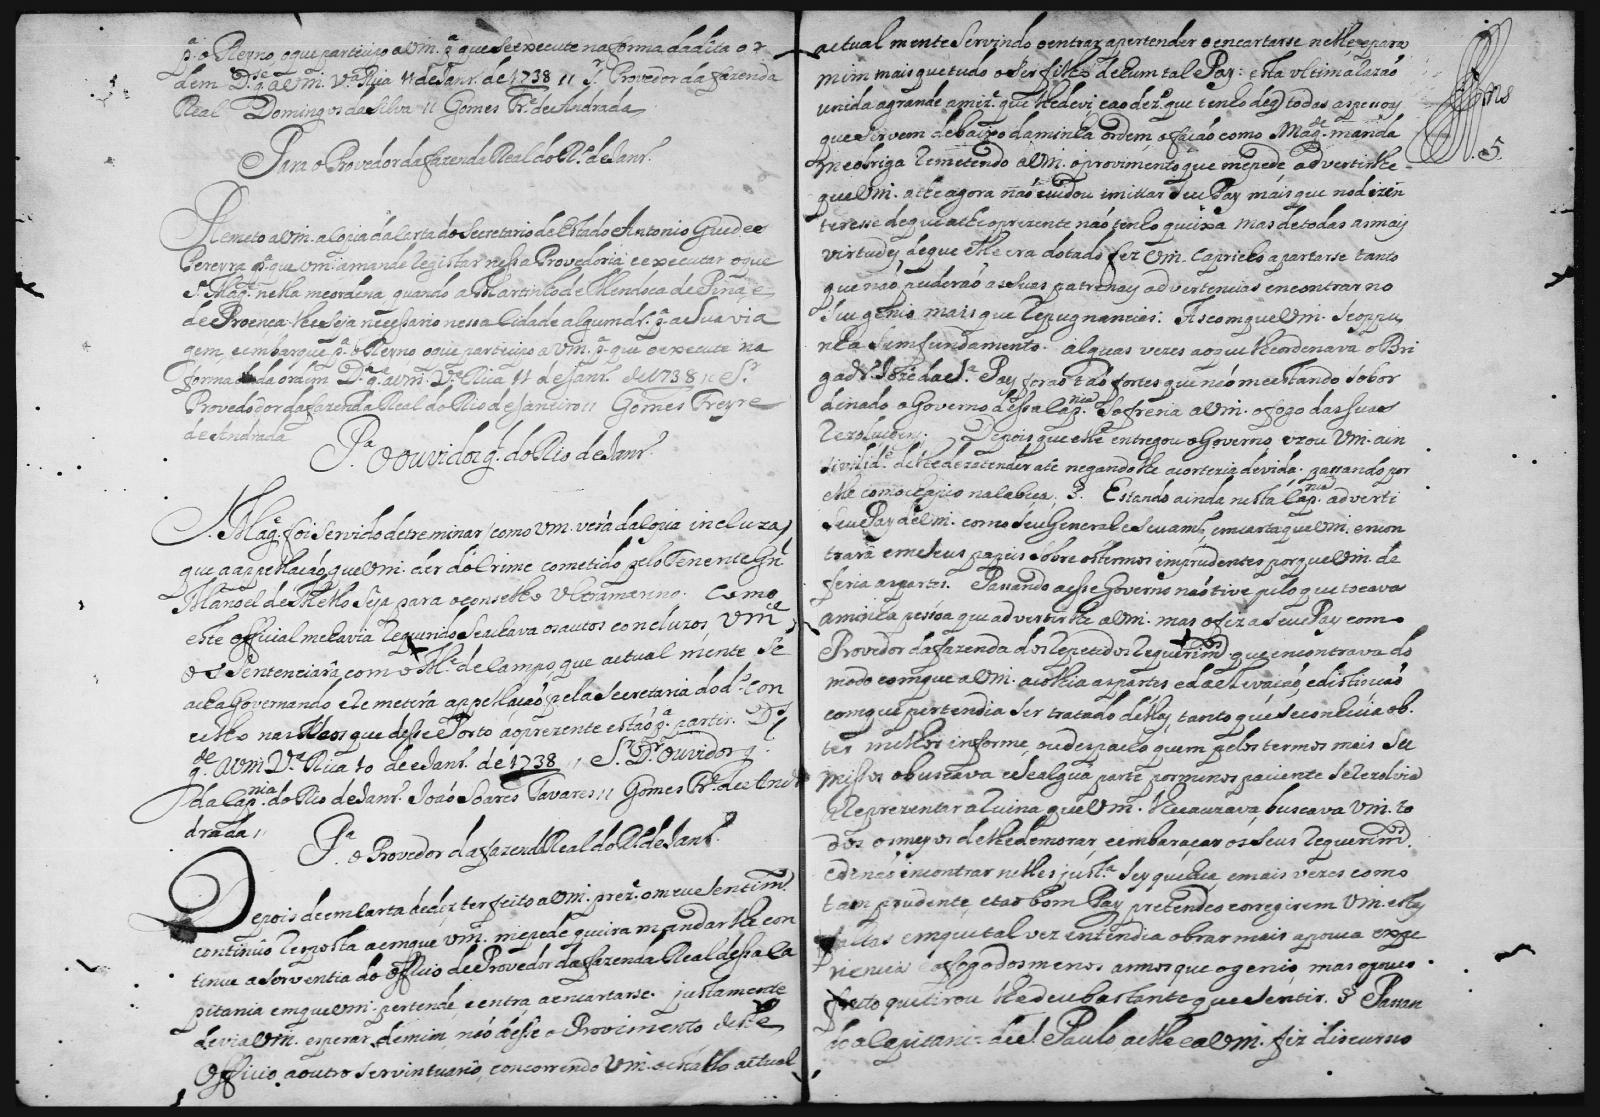 p.ª o Reyno, o que participo a Vm. p.ª que se execute na forma da dita or
dem D.s g.e a Vm. V.ª Rica 11 de Janr.o de 1738 // S.r Provedor da fazenda
Real Domingos da Silva // Gomes Fr.e de Andrada
Para o Provedor da fazenda Real do R.o de Janr.o
Remeto a Vm. a copia da Carta do Secretario de Estado Antonio Guedes
Pereyra p.ª que Vm. a mande registar nessa Provedoria e executar o que
S. Mag.e nella me ordena, quando a Martinho de Mendoça de Pina, e
de Proença lhe seja necessario nessa Cidade algum dr.o p.ª a Sua via
gem, e embarque p.ª o Reyno o que participo a Vm. p.ª que o execute na
forma da da ordem D.s g.e a Vm. V.ª Rica 11 de Janr.o de 1738 // S.r
Provedodor da fazenda Real do Rio de Janeiro // Gomes Freyre
de Andrada
P.ª o Ouvidor g.l do Rio de Janr.o
S. Mag.e foi Servido detreminar (como Vm. verá da Copia incluza)
que a appellação que Vm. der do Crime cometido pelo Tenente Gn.l
Manoel de Mello seja para o conselho Ultramarino. Como
este official me havia requerido se achava os autos concluzos, Vm.ce
os Sentenciará com o M.e de Campo que actual mente se
acha Governando e remeterá a appellação pela Secretaria do d.o Con
celho nas Naos que desse Porto ao prezente estão p.ª partir. D.s
g.de a Vm. V.ª Rica 10 de Janr.o de 1738 // S.r D.r Ouvidor g.l
da Cap.nia do Rio de Janr.o João Soares Tavares // Gomes Fr.e de And
drada //
P.ª o Provedor da fazend Real do R.o de Janr.o
Depois de em Carta de dez ter feito a Vm. prez.e o meu sentim.to
continuo resposta a em que Vm. me pede queira mandar lhe con
tinue a serventia do officio de Provedor da fazenda Real dessa Ca
pitania em que Vm. pertende, e entra a encartarse. justamente
devia Vm. esperar de mim, não desse o Provimento deste
Officio a outro serventuario, concorrendo Vm. e achallo actual
actual mente Servindo o entrar a pertender o encartarse nelle e para
mim mais que tudo o Ser filho de hum tal Pay: esta ultima razão
unida a grande amiz.e que lhe devi, e ao dez.o que tenho de q todas as pessoas
que servem debaixo da minha ordem, o fação como S. Mag.de manda
me obriga remetendo a Vm. o provimento que me pede, advertirlhe
que Vm. athe agora não cuidou imitar seu Pay mais que no dezin
teresse de que athe o prezente não tenho queixa mas de todas as mais
virtudes de que elle era dotado fez Vm. Capricho apartarse tanto
que não puderão as suas paternaes advertencias encontrar no
Seu genio mais que repugnancias. As com que Vm. se oppu
nha Sem fundamento algũas vezes ao que lhe ordenava o Bri
gad.ro Jozé da S.ª Paes forão tão fortes que não me estando sobor
dinado o Governo dessa Cap.nia Sofreria a Vm. o fogo das suas
rezoluções. Depois que elle entregou o Governo uzou Vm. a in
sivilid.e de lhe dezatender até negandolhe a cortezia devida. passando por
elle como 3. Estando ainda nesta Cap.nia adverti
Seu Pay de Vm. como Seu General e Seu am.o em carta que Vm. encon
trará em seus papeis sobre os termos imprudentes porque Vm. de
feria as partes. Passando a esse Governo não tive pelo que tocava
a minha pessoa que advertirlhe a Vm. mas o fiz a Seu Pay como
Provedor da fazenda dos repetidos requerim.tos que encontrava do
modo com que a Vm. acolhia as partes e da elevação, e distinção
com que pertendia ser tratado dellas, tanto que se conhecia ob
ter melhor informe, ou despacho quem pelos termos mais Su
missos o buscava e se algũa parte por menos paciente se rezolvia
a reprezentar a ruina que Vm. lhe cauzava, buscava Vm. to
dos os meyos de lhe demorar, e embaraçar os seus requerim.tos
e de não encontrar nelles just.ª Sey que hua e mais vezes como
tam prudente, e tão bom Pay pretendeo corregir em Vm. estas
faltas em que tal vez entendia obrar mais a pouca expe
riencia e o fogo dos menos annos que o genio, mas o pouco
fruto que tirou lhe deu bastante que sentir. 3. Passan
do a Capitania de S. Paulo, a elle e a Vm. fiz discurso